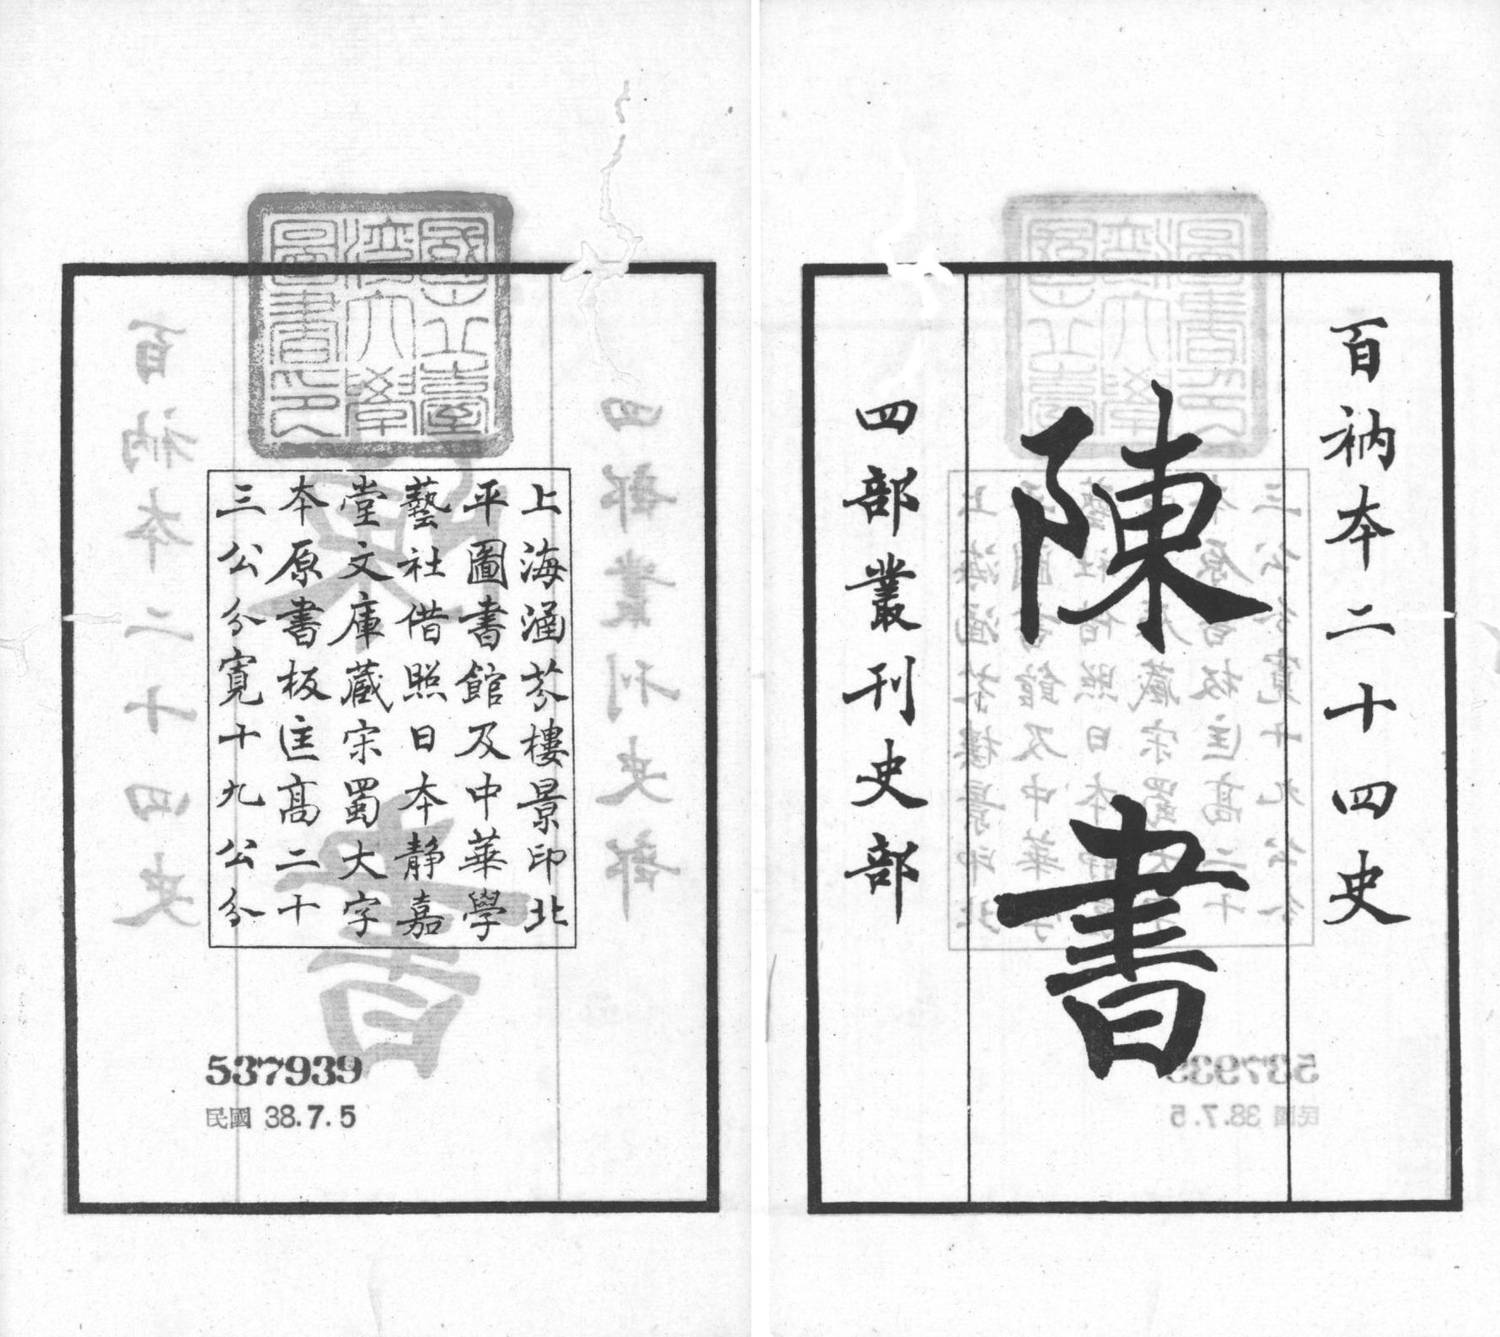 百衲本二十四史
陳書
四部叢刊史部
國立臺
灣大學
圖書印
上海涵芬樓景印北
平圖書館及中華學
藝社借照日本靜嘉
堂文庫藏宋蜀大字
本原書板匡高二十
三公分寬十九公分
537939
民國 38.7.5